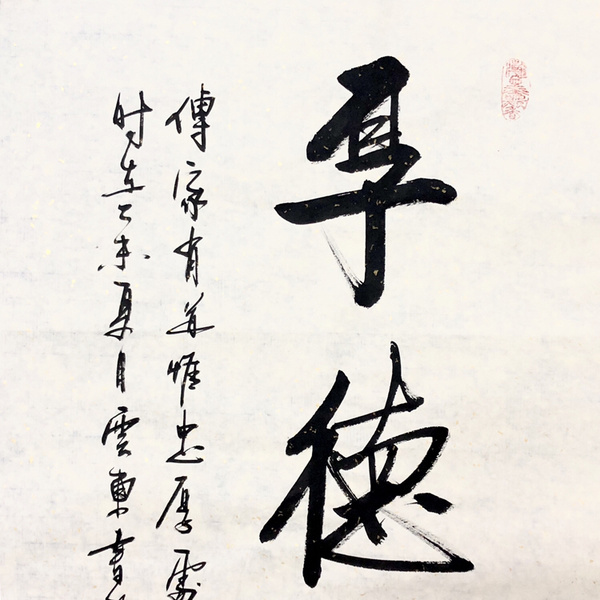 厚德
傳家有道惟忠厚處
时在乙未夏月雲東書